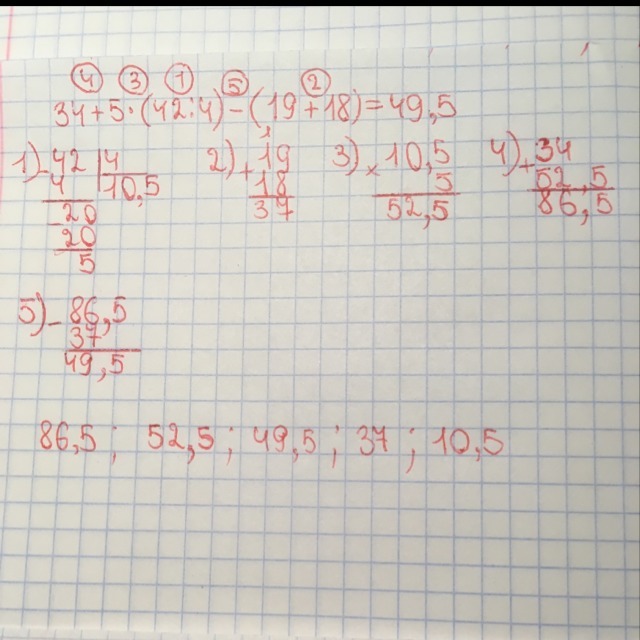 ④ ③ ① ⑤ ②
34+5·(42:4)-(19+18)=49,5
1) -42 |4
4 10,5
-20
20
5
2) 1
+19
18
37
3) ×10,5
5
52,5
4) +34
52,5
86,5
5) -86,5
37
49,5
86,5; 52,5; 49,5; 37; 10,5